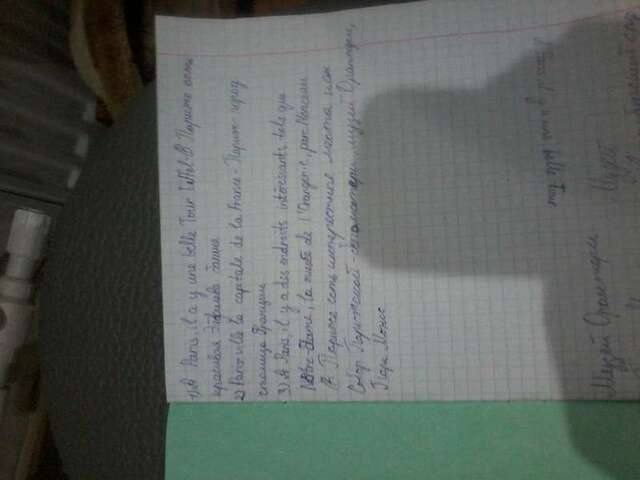 1) A Paris, il a y une belle Tour Eiffel - В Париже есть
красивая Эйфелева башня
2) Paris ville la capitale de la France - Париж - город
столица Франции
3) A Paris, il y a des endroits intéressants tels que
Notre-Dame, la musée de l'Orangerie, parc Monceau
В Париже есть интерестные места как
Собор Парижской - богоматери, музей Оранжери,
Парк Монсо
il y a une belle Tour
Музей Оранжери
Музей